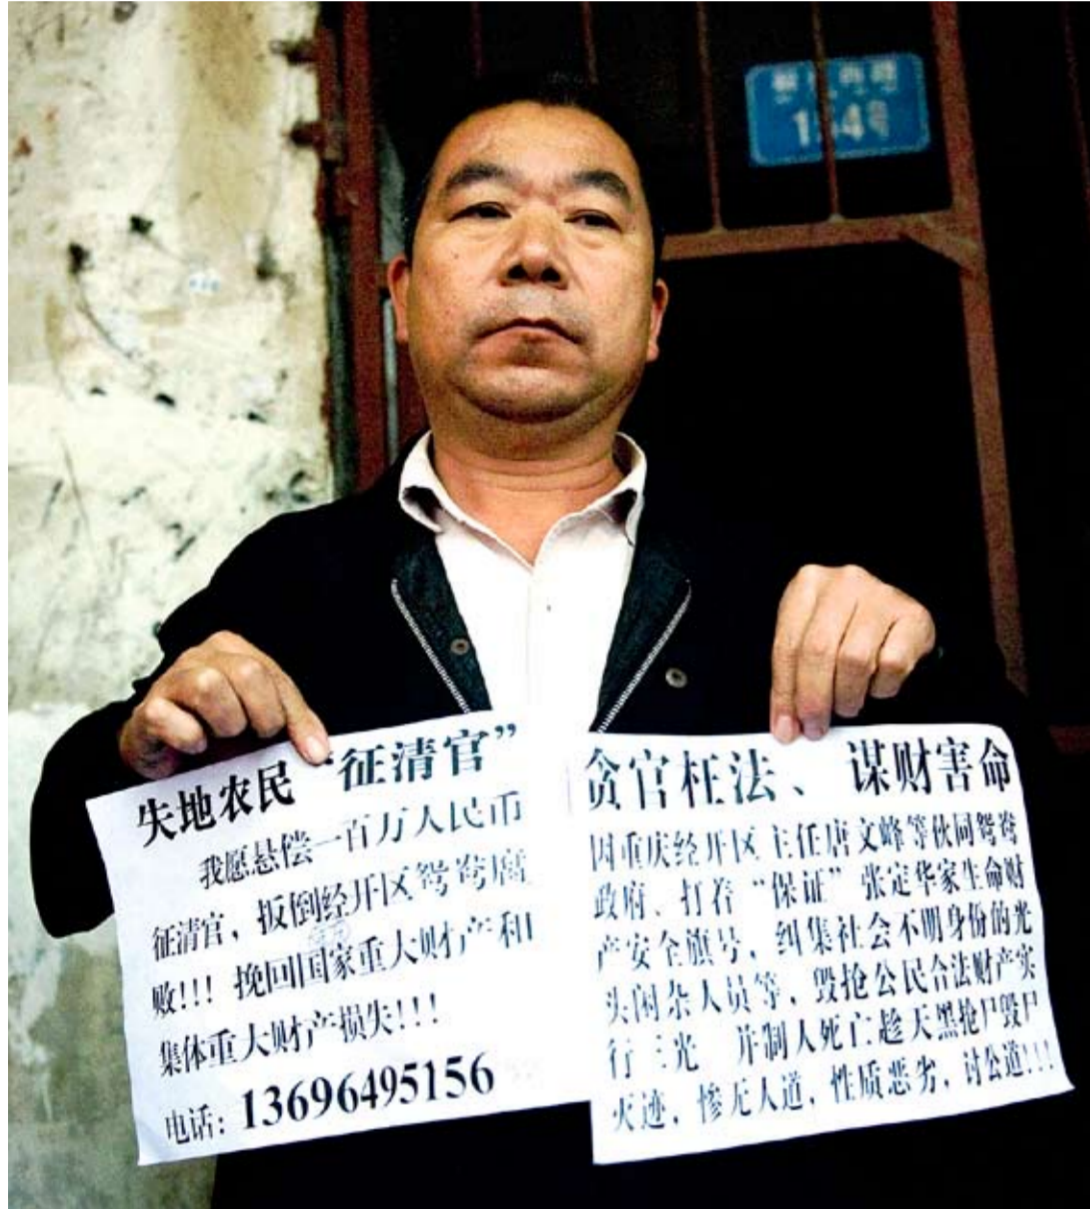 134号
失地农民“征清官”
我愿悬偿一百万人民币
征清官，扳倒经开区鸳鸯腐
败!!! 挽回国家重大财产和
集体重大财产损失!!!
电话：13696495156
贪官枉法、谋财害命
因重庆经开区主任唐文峰等伙同鸳鸯
政府、打着“保证”张定华家生命财
产安全旗号，纠集社会不明身份的光
头闲杂人员等，毁抢公民合法财产实
行三光 并制人死亡趁天黑抢尸毁尸
灭迹，惨无人道，性质恶劣，讨公道!!!